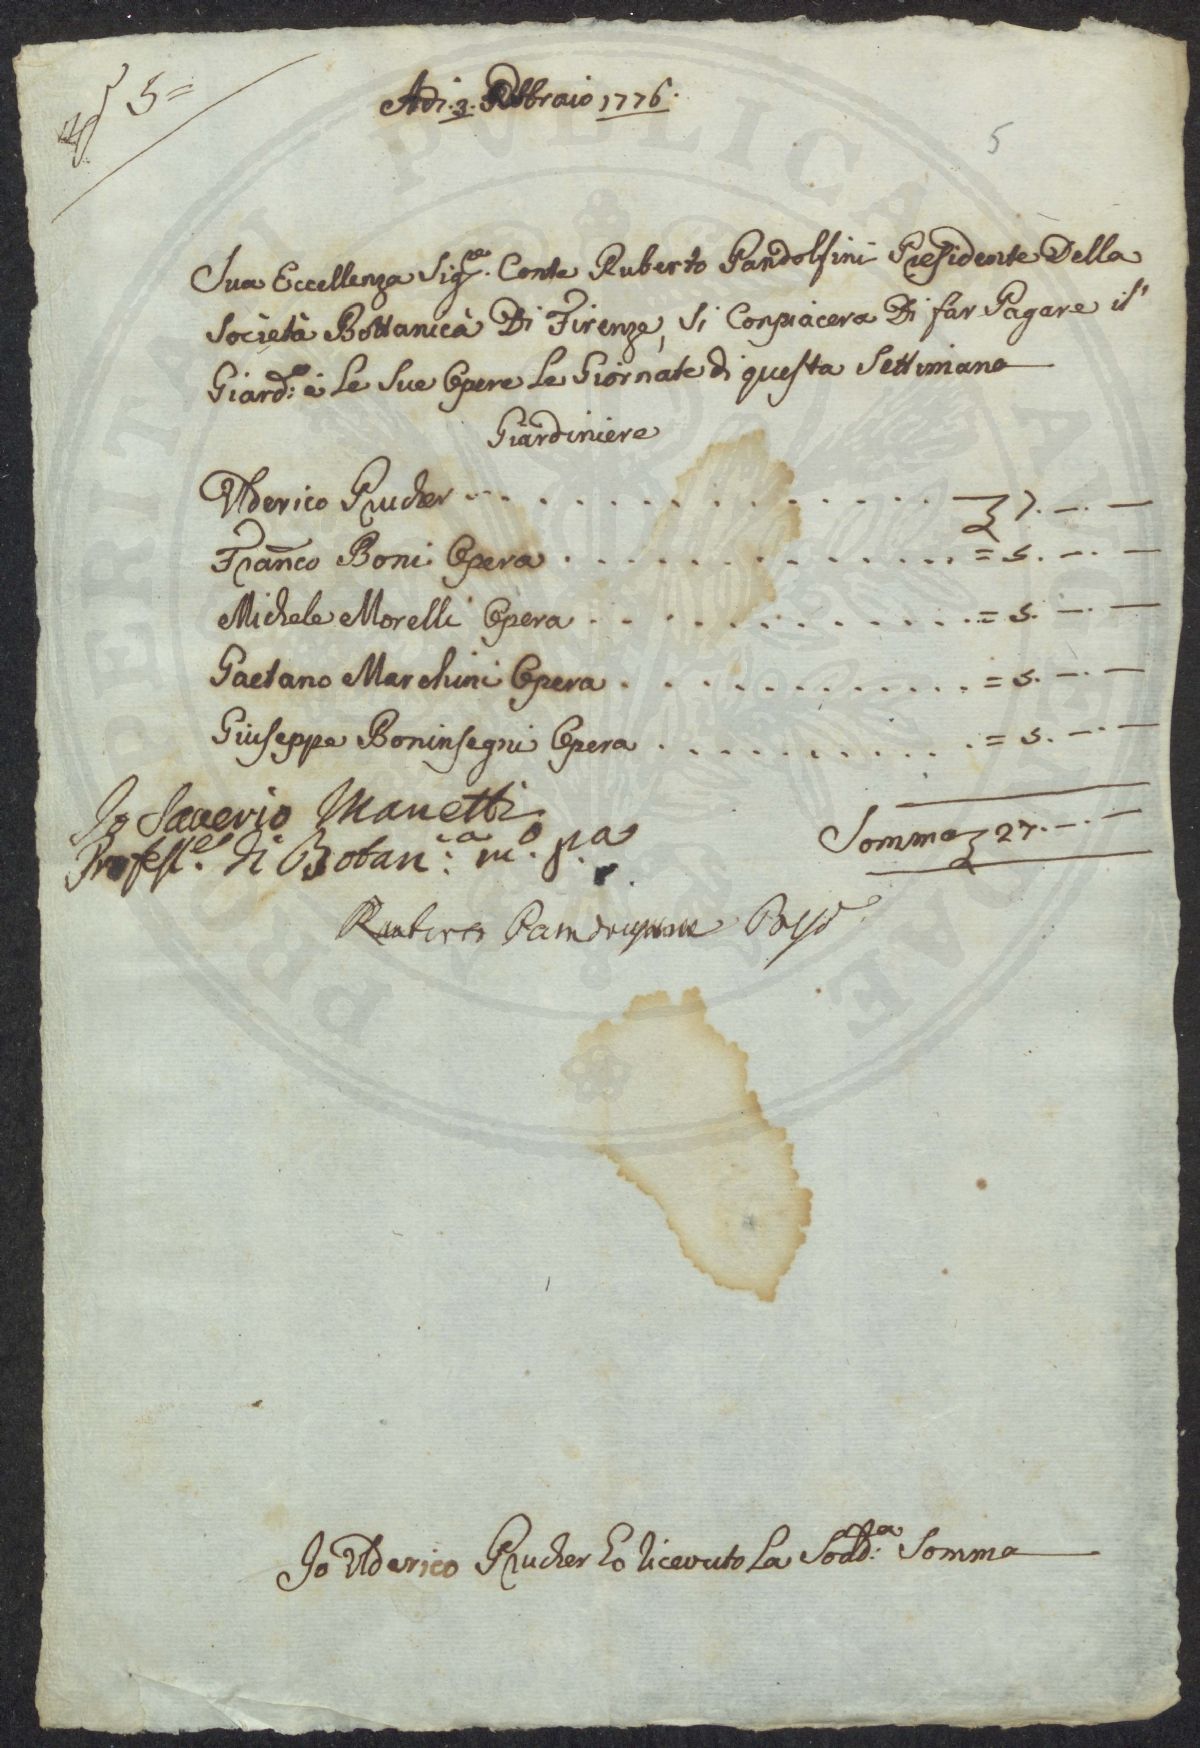 N° 5=
Adi. 3. Febbraio 1776.
5
Sua Eccellenza Sig.re Conte Ruberto Pandolfini Presidente Della
Società Bottanicà Di Firenze, Si Conpiacera Di far Pagare il
Giard.o è Le Sue Opere Le Giornate di questa Settimana
Giardiniere
Ulderico Prucher - - . . . . . . . . . . . . 7. —. —
Franco Boni Opera . . . . . . . . . . . . = 5. —. —
Michele Morelli Opera . . . . . . . . . . . = 5. —. —
Gaetano Marchini Opera . . . . . . . . . . = 5. —. —
Giuseppe Boninsegni Opera . . . . . . . . . = 5. —. —
Io Saverio Manetti
Profess.e di Botan.ca m.o p.a
Somma 27. —. —
Ruberto Pandolfini
Io Ulderico Prucher Eo ricevuto La Sodd.a Somma
PERITATI PVBLICAE